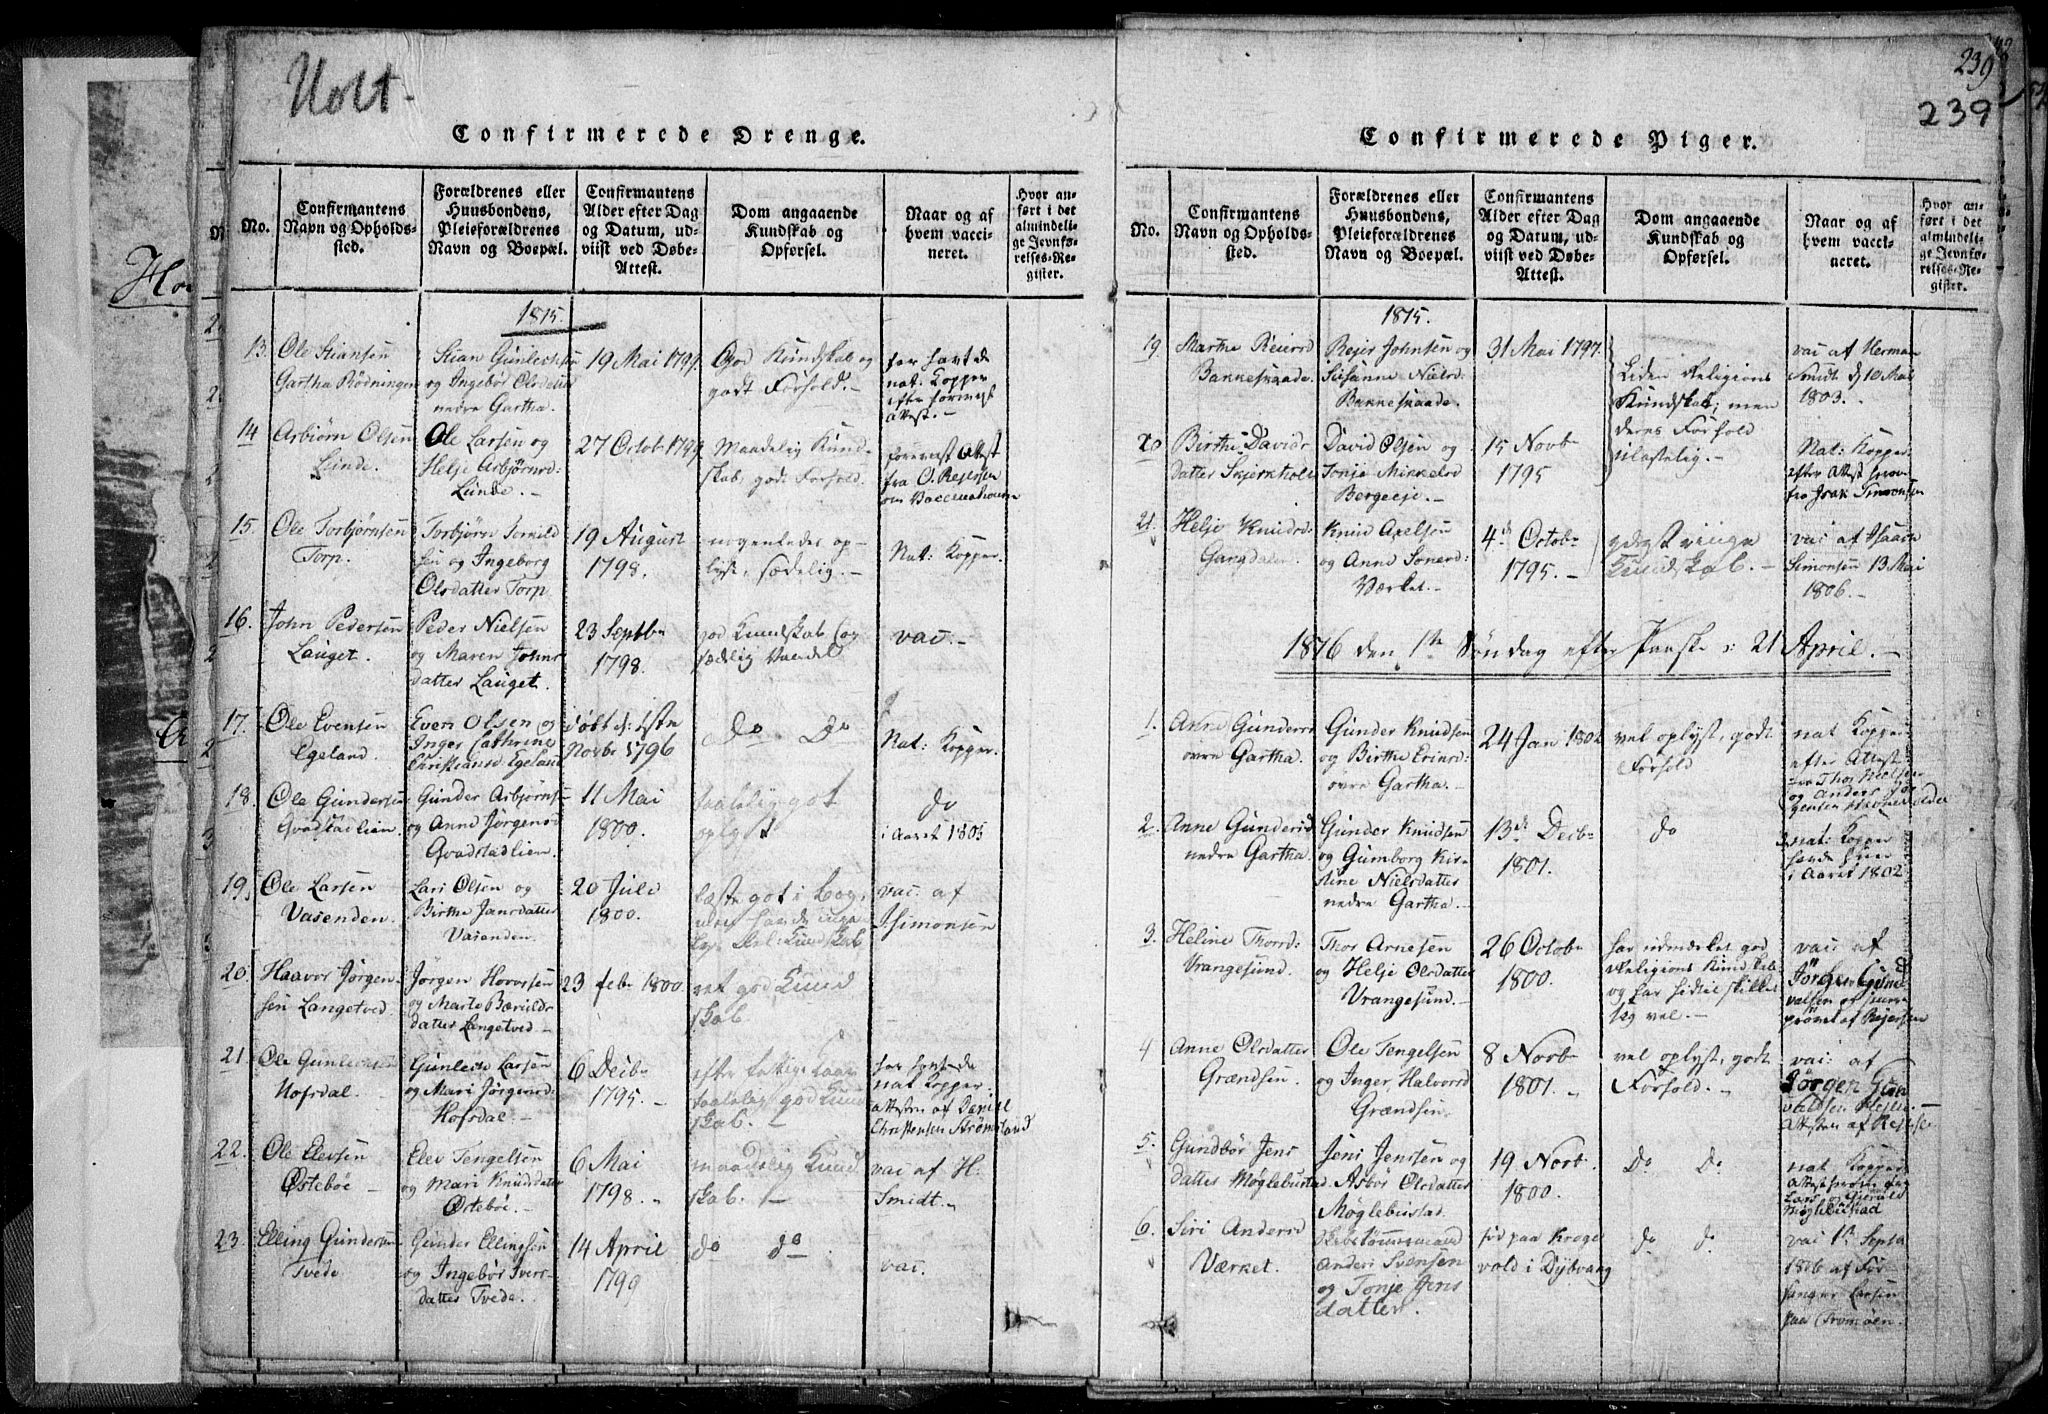 Holt
239
239
Confirmerede Drenge.
No.
Confirmantens
Navn og Opholds-
sted.
Forældrenes eller
Huusbondens,
Pleieforældrenes
Navn og Boepæl.
Confirmantens
Alder efter Dag
og Datum, ud-
viist ved Døbe-
Attest.
Dom angaaende
Kundskab og
Opførsel.
Naar og af
hvem vacci-
neret.
Hvor an-
ført i det
almindeli-
ge Jevnfø-
relses-Re-
gister.
1815.
13.
Ole Stiansen
Gartha Rödningen
Stian Gunlechsen
og Ingebør Olsdatter
nedre Gartha.
19 Mai 1799.
God Kundskab og
godt Forhold. -
har havt de
nat: Kopper
efter
Attest. -
14
Asbiørn Olsen
Lunde.
Ole Larsen og
Helje Asbjørnsd:
Lunde. -
27 Octob 1799
Maadelig Kund-
skab, godt Forhold.
foreviist Attest
fra O. Rejersen
om Vaccinationen
15.
Ole Torbjørnsen
Torp.
Torbjørn Torkild
sen og Ingeborg
Olsdatter Torp
19 August
1798.
nogenledes op-
lyst, sædelig. -
Nat: Kopper.
16.
John Pedersen
Lauget.
Peder Nielsen
og Maren Johns
datter Lauget.
23 Septbr
1798.
god Kundskab og
sædelig Vandel
vac: -
17.
Ole Evensen
Egeland.
Even Olsen og
Inger Cathrine
Christiansd Egeland
døbt d: 1ste
Novbr 1796
Do Do
Nat: Kopper.
18.
Ole Gundersen
Qvadstadlien
Gunder Asbjørns
og Anne Jørgensd
Qvadstadlien.
11 Mai
1800.
taalelig got
oplyst
do
i Aaret 1805
19.
Ole Larsen
Vasenden.
Lars Olsen og
Birthe Jansdatter
Vasenden.
20 Juli
1800.
læste got i Bog,
men havde inga
Rel: Kundskab
vac: af
J. Simonsen
20.
Haavor Jørgen-
sen Langetved
Jørgen Hovorsen
og Marte Bærulds
datter Langetved -
23 febr 1800.
ret god Kund
skab.
-
21
Ole Gunlechsen
Hofsdal.
Gunlech Larsen
og Mari Jørgensd
Hofsdal. -
6 Decbr
1795. -
efter fattige Kaar
taalelig god Kund
skab. -
har havt de
nat Kopper.
Attesten af Daniel
Christensen Strømsland
22.
Ole Elevsen
Østebøe -
Elev Tengelsen
og Mari Knudsdatter
Østebøe. -
6 Mai
1798. -
maadelig Kund
skab. -
vac af H:
Smidt. -
23.
Elling Gundersen
Tvede
Gunder Ellingsen
og Ingebør Ivers-
datter Tvede.
14 April
1799
do do
vac.
Confirmerede Piger.
No.
Confirmantens
Navn og Opholds-
sted.
Forældrenes eller
Huusbondens,
Pleieforældrenes
Navn og Boepæl.
Confirmantens
Alder efter Dag
og Datum, ud-
viist ved Døbe-
Attest.
Dom angaaende
Kundskab og
Opførsel.
Naar og af
hvem vacci-
neret.
Hvor an-
ført i det
almindeli-
ge Jevnfø-
relses-Re-
gister.
1815.
19
Marthe Reiersd
Bakkeskaade.
Rejer Johnsen og
Susanne Nielsd.
Bakkeskaade.
31 Mai 1797.
Liden Religions
Kundskab; men
deres Forhold
ulastelig.
vac af Herman
Smidt d 10 Mai
1803.
20
Birthe Davids
datter Skjerkholt
David Olsen og
Tonje Mikkelsd
Bergeeje. -
15 Novb
1795
Nat: Kopper
efter Attest
fra Isak Simonsen
21.
Helje Knudsd:
Gangdalen
Knud Axelsen
og Anne Sonersd:
Værket. -
4de Octobr
1795. -
ydest ringe
Kundskab. -
vac: af Isaach
Simonsen 13 Mai
1806. -
1816 den 1te Søndag efter Paaske : 21 April. -
1.
Anne Gundersd
øvre Gartha.
Gunder Knudsen
og Birthe Ericsd:
øvre Gartha. -
24 Jan 1802
vel oplyst, godt
Forhold
nat Kopper
efter Attest
fra Thor Nielsen
og Anders Jør
gensen
2.
Anne Gundersd
nedre Gartha.
Gunder Knudsen
og Gumborg Kir-
stine Nielsdatter
nedre Gartha.
13de Decbr
1801.
do
nat: Kopper
havde hun
i Aaret 1802.
3.
Heline Thorsd:
Vrangesund.
Thor Arnesen
og Helje Olsdatter
Vrangesund.
26 Octobr
1800.
har udmærket god
Religions Kundskab
og har hidtil skikket
sig vel. -
vac: af
Jørgen Gund
valsen og
prøvet af Rejersen
4
Anne Olsdatter
Grændsen.
Ole Tengelsen
og Inger Halvorsd
Grændsen
8 Novbr
1801. -
vel oplyst, godt
Forhold. -
vac: af
Jørgen Gun
valdsen Hesse. -
Attesten af Rejersen
5.
Gundbør Jens
datter Møglebustad
Jens Jensen og
Asbør Olsdatter
Møglebustad
19 Novb
1800.
Do Do
nat Kopper
Attest
Lars og
Møglebustad
6.
Siri Andersd
Værket.
Anders Svensen
og Tonje Jens
datter.
fød paa Kroge
vold i Dybvaag
do do
vac 1te Septb
1816 af For
sanger Larsen
paa Tromøen.